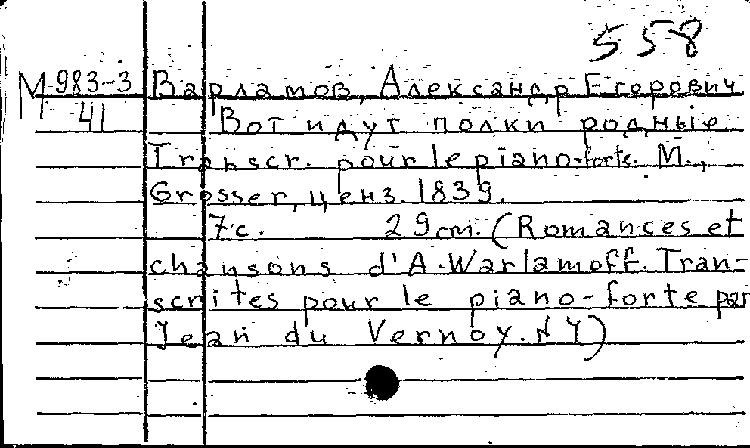 558
М 983-3 Варламов, Александр Егорович
41 Вот идут полки родные.
Transcr. pour le piano-forte. М.,
Grosser, ценз. 1839.
7с. 29 cm. (Romances et
chansons d'A. Warlamoff. Tran-
scrites pour le piano-forte par
Jean du Vernoy. N 7)